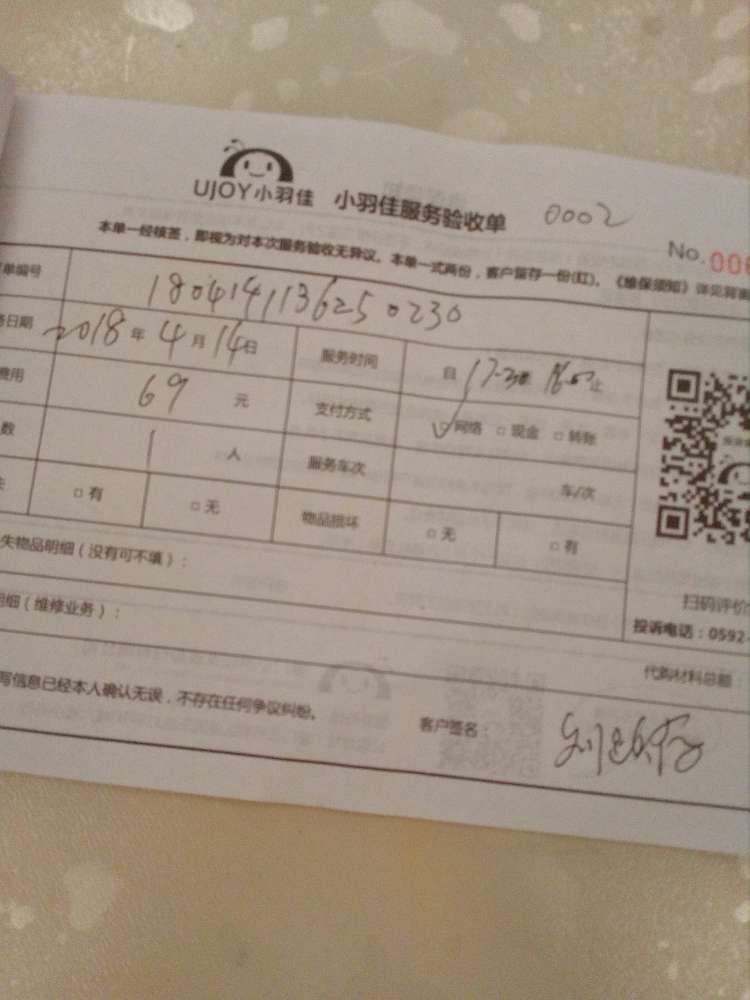 UJOY小羽佳 小羽佳服务验收单 0002
No.006
本单一经核签,即视为对本次服务验收无异议。本单一式两份,客户留存一份(红)。《维保须知》详见背面
单编号 180414113625 0230
日期 2018年4月14日 服务时间 自17:30 18:00止
费用 69 元 支付方式 ☑网络 □现金 □转账
数 1 人 服务车次 车/次
失 □有 □无 物品损坏 □无 □有
失物品明细(没有可不填):
扫码评价
明细(维修业务): 投诉电话:0592-
代购材料总额:
写信息已经本人确认无误,不存在任何争议纠纷。 客户签名: